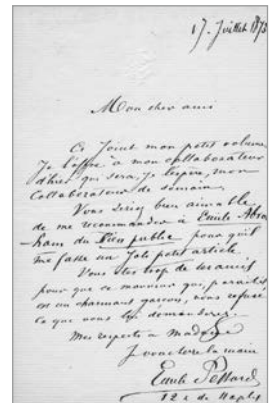 17. Juillet 1873
Mon cher ami
Ci Joint mon petit volume,
Je l'offre à mon collaborateur
d'hier qui sera, je l'espère, mon
Collaborateur de demain.
Vous seriez bien aimable
de me recommander à Emile Abra
ham du Bien public pour qu'il
me fasse un joli petit article.
Vous êtes trop de ses amis
pour que ce monsieur qui, paraît-il,
est un charmant garçon, vous refuse
ce que vous lui demanderez.
Mes respects à Madame
Je vous serre la main
Emile Pessard
12 r de Naples